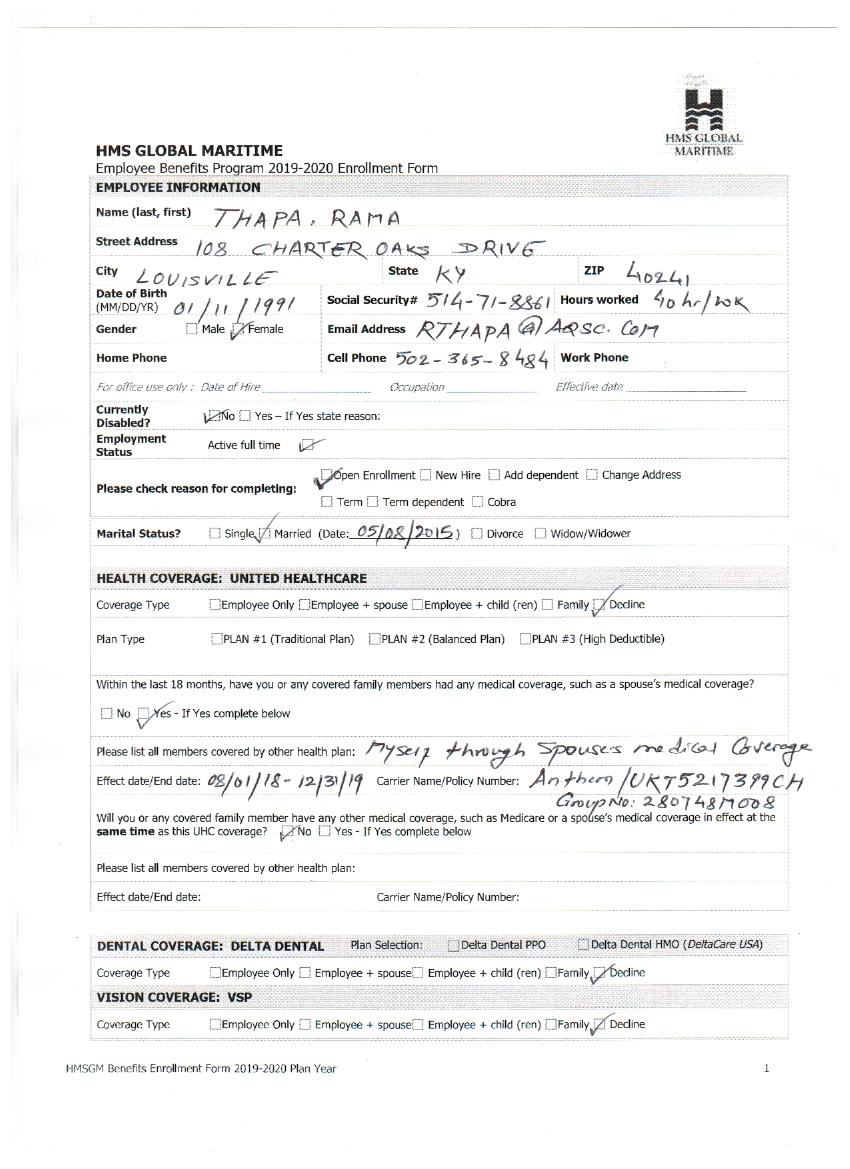 HMS GLOBAL
MARITIME
HMS GLOBAL MARITIME
Employee Benefits Program 2019-2020 Enrollment Form
EMPLOYEE INFORMATION
Name (last, first) THAPA, RAMA
Street Address 108 CHARTER OAKS DRIVE
City LOUISVILLE State KY ZIP 40241
Date of Birth (MM/DD/YR) 01/11/1991 Social Security# 514-71-8861 Hours worked 40 hr/wk
Gender Male Female Email Address RTHAPA@AQSC.COM
Home Phone Cell Phone 502-365-8484 Work Phone
For office use only : Date of Hire Occupation Effective date
Currently Disabled? No Yes – If Yes state reason:
Employment Status Active full time
Please check reason for completing: Open Enrollment New Hire Add dependent Change Address
Term Term dependent Cobra
Marital Status? Single Married (Date: 05/08/2015) Divorce Widow/Widower
HEALTH COVERAGE: UNITED HEALTHCARE
Coverage Type Employee Only Employee + spouse Employee + child (ren) Family Decline
Plan Type PLAN #1 (Traditional Plan) PLAN #2 (Balanced Plan) PLAN #3 (High Deductible)
Within the last 18 months, have you or any covered family members had any medical coverage, such as a spouse's medical coverage?
No Yes - If Yes complete below
Please list all members covered by other health plan: Myself through Spouses medical Coverage
Effect date/End date: 08/01/18 - 12/31/19 Carrier Name/Policy Number: Anthem/UKT5217399CH
Group No: 28074817008
Will you or any covered family member have any other medical coverage, such as Medicare or a spouse's medical coverage in effect at the
same time as this UHC coverage? No Yes - If Yes complete below
Please list all members covered by other health plan:
Effect date/End date: Carrier Name/Policy Number:
DENTAL COVERAGE: DELTA DENTAL Plan Selection: Delta Dental PPO Delta Dental HMO (DeltaCare USA)
Coverage Type Employee Only Employee + spouse Employee + child (ren) Family Decline
VISION COVERAGE: VSP
Coverage Type Employee Only Employee + spouse Employee + child (ren) Family Decline
HMSGM Benefits Enrollment Form 2019-2020 Plan Year 1